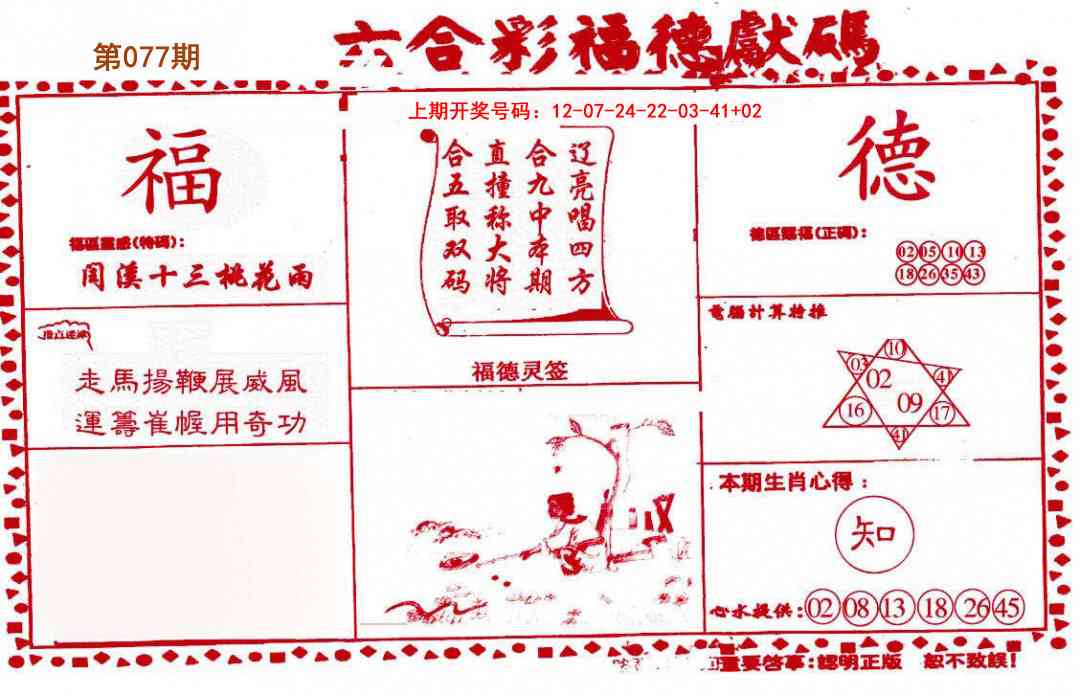 第077期
六合彩福德獻碼
上期开奖号码：12-07-24-22-03-41+02
福
福區靈感(特碼)：
闰溪十三桃花雨
走馬揚鞭展威風
運籌崔幄用奇功
辽亮唱四方
合九中本期
直撞称大将
合五取双码
福德灵签
德
德區賜福(正碼)：
02 05 10 13
18 26 35 43
電腦計算特推
10
03 41
02
09
16 17
41
本期生肖心得：
知
心水提供：02 08 13 18 26 45
重要啓事：認明正版 恕不致誤！